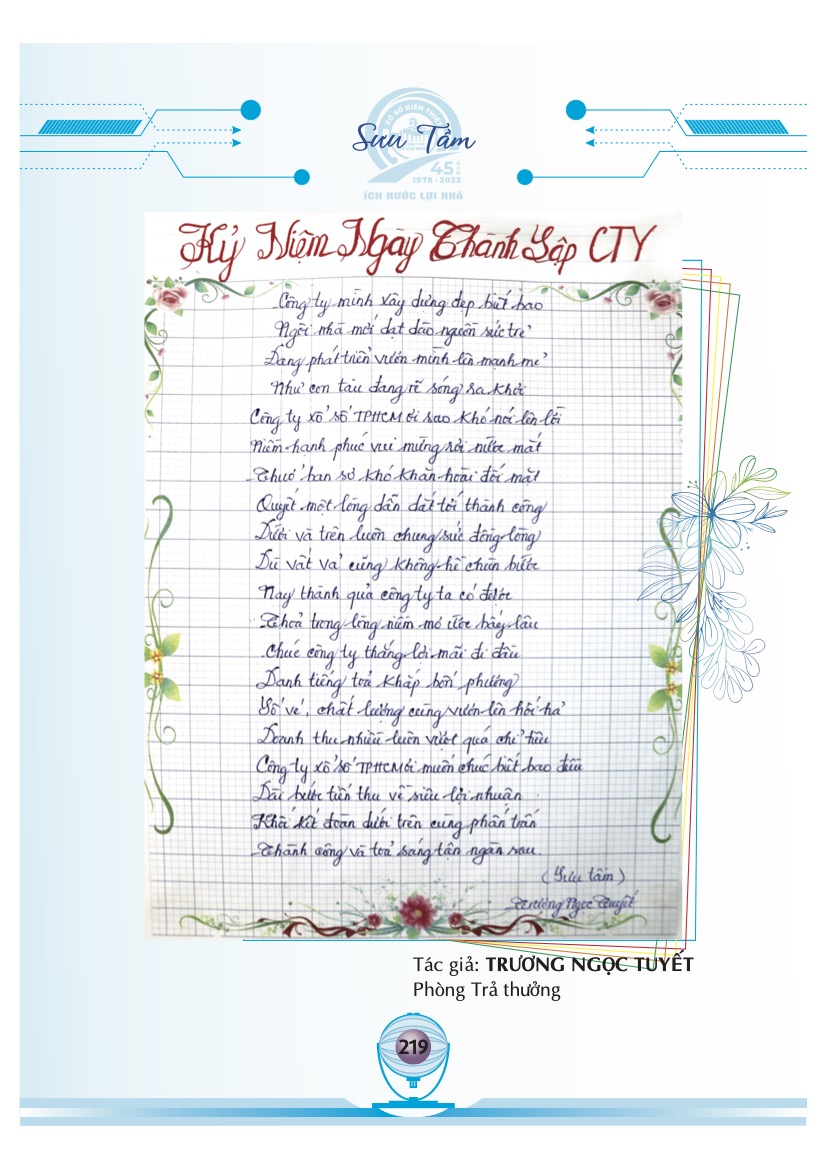 XỔ SỐ KIẾN THIẾT
Sưu Tầm
45 NĂM
1978 - 2023
ÍCH NƯỚC LỢI NHÀ
Kỷ Niệm Ngày Thành Lập CTY
Công ty mình xây dựng đẹp biết bao
Ngôi nhà mới dạt dào nguồn sức trẻ
Đang phát triển vươn mình lên mạnh mẽ
Như con tàu đang rẽ sóng ra khơi
Công ty xổ số TPHCM ơi sao khó nói lên lời
Niềm hạnh phúc vui mừng rơi nước mắt
Thuở ban sơ khó khăn hoài đối mặt
Quyết một lòng dẫn dắt tới thành công
Dưới và trên luôn chung sức đồng lòng
Dù vất vả cũng không hề chùn bước
Nay thành quả công ty ta có được
Thoả trong lòng niềm mơ ước bấy lâu
Chúc công ty thắng lợi mãi đi đầu
Danh tiếng toả khắp bốn phương
Số vé, chất lượng cùng vươn lên hối hả
Doanh thu nhiều luôn vượt quá chỉ tiêu
Công ty xổ số TPHCM ơi muôn chúc biết bao điều
Dài bước tiến thu về siêu lợi nhuận
Khối kết đoàn dưới trên cùng phấn trấn
Thành công và toả sáng tận ngàn sau.
(Sưu tầm)
Trương Ngọc Tuyết
Tác giả: TRƯƠNG NGỌC TUYẾT
Phòng Trả thưởng
219